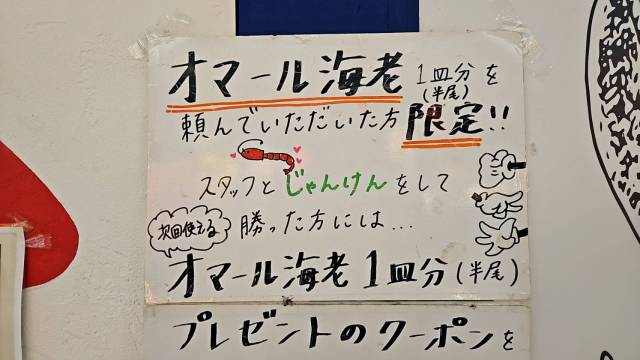 オマール海老 1皿分を
(半尾)
頼んでいただいた方 限定!!
スタッフとじゃんけんをして
次回使える
勝った方には...
オマール海老1皿分(半尾)
プレゼントのクーポンを